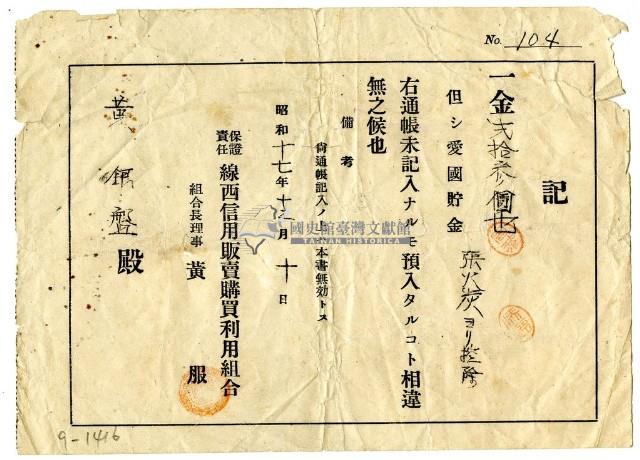 No. 104
記
一金弐拾参圓也
但シ愛國貯金
張火炭ヨリ控除
右通帳未記入ナルモ預入タルコト相違
無之候也
備考
尙通帳記入ノ上ハ本書無効トス
昭和十七年十二月十日
保證責任 線西信用販賣購買利用組合
組合長理事 黃 服
黃 銀 盤 殿
國史館臺灣文獻館
TAIWAN HISTORICA
9-1416